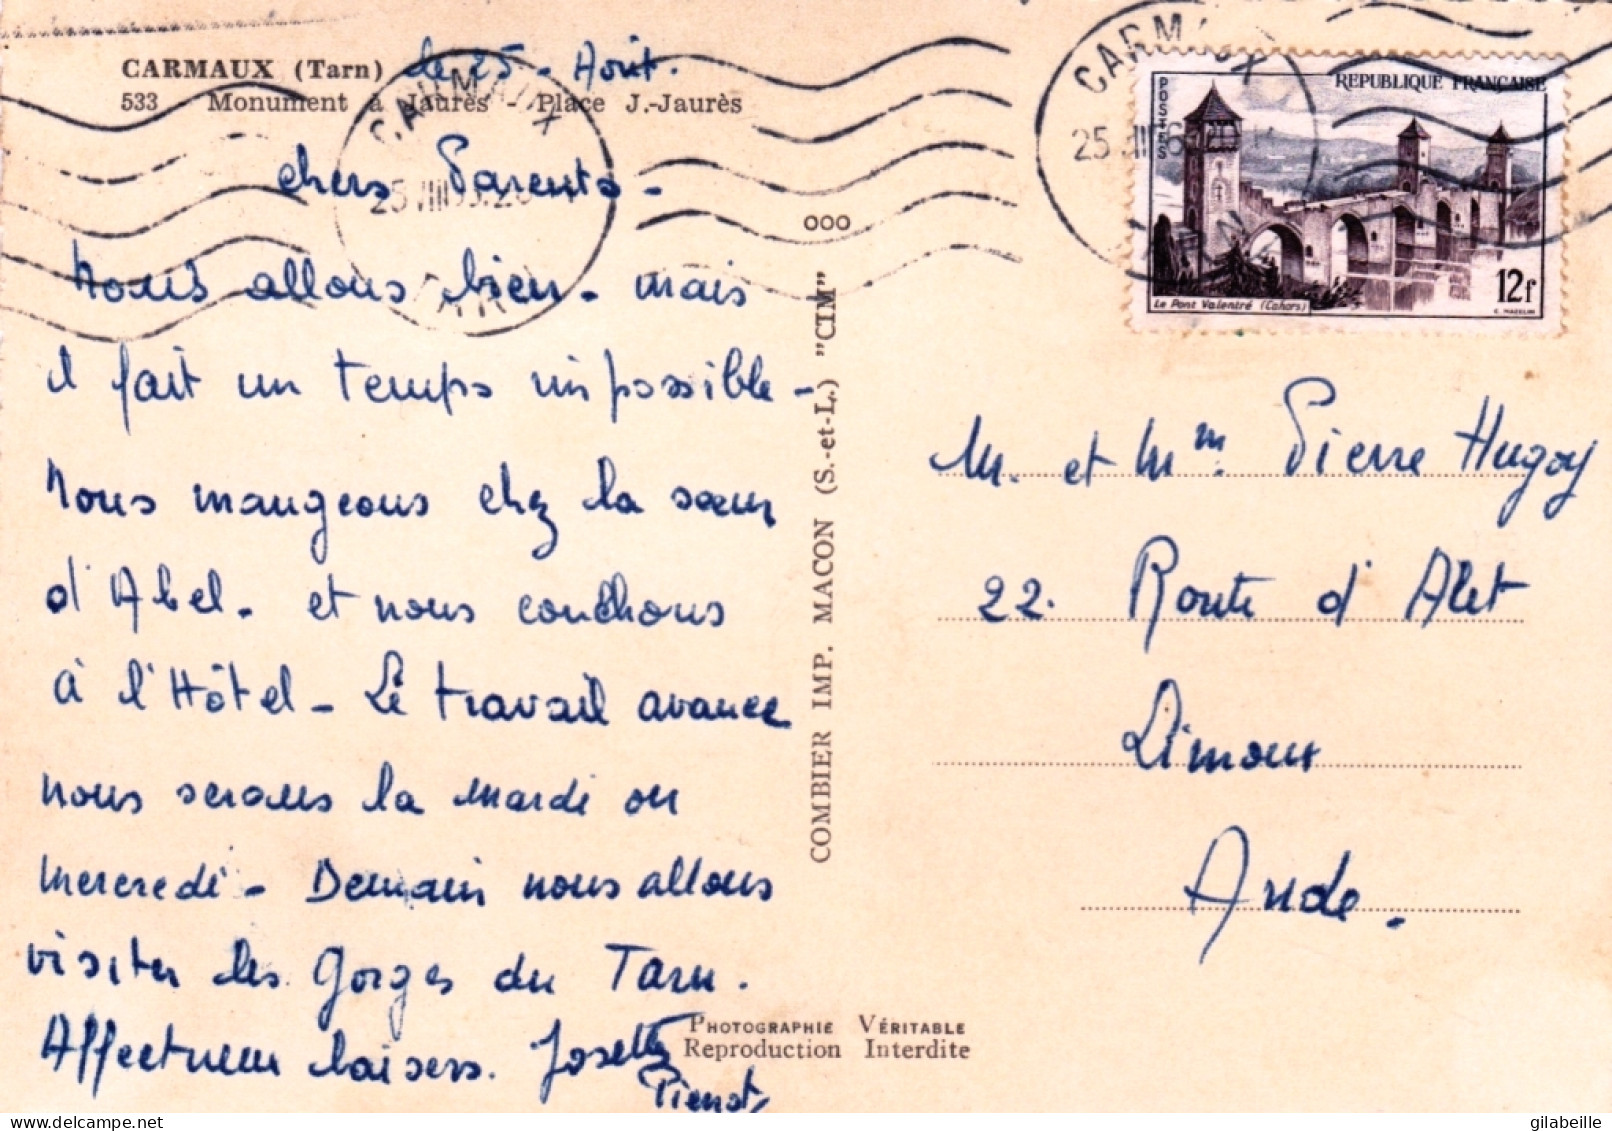 CARMAUX (Tarn) le 25 - Août.
533 - Monument à Jaurès - Place J.-Jaurès
chers Parents -
Nous allons bien - mais
il fait un temps impossible -
Nous mangeons chez la sœur
d'Abel - et nous couchons
à l'Hôtel - Le travail avance
nous serons la mardi ou
mercredi - Demain nous allons
visiter les Gorges du Tarn.
Affectueux baisers. Josette
Pierrot
PHOTOGRAPHIE VÉRITABLE
Reproduction Interdite
OOO
COMBIER IMP. MACON (S.-et-L.) "CIM"
CARMAUX
TARN
CARMAUX
TARN
REPUBLIQUE FRANÇAISE
POSTES
12f
Le Pont Valentré (Cahors)
C. MAZELIN
M. et Mm. Pierre Hugoy
22. Route d'Alet
Limoux
Aude.
gilabeille